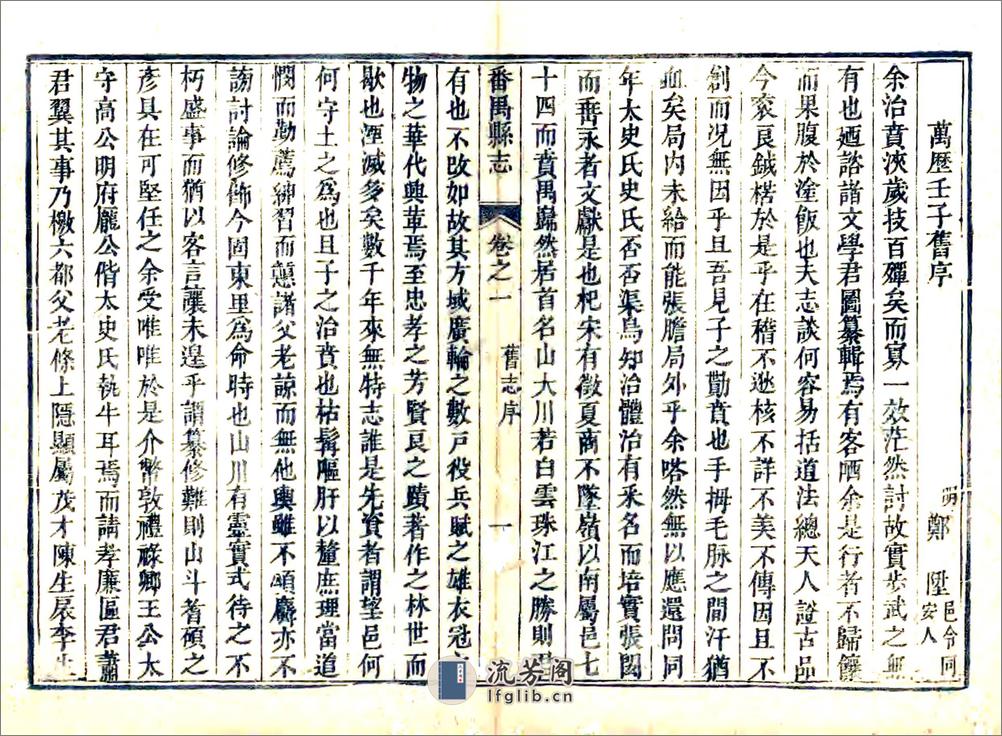 萬歷壬子舊序
明鄭陞邑令同安人
余治賁浹歲技百殫矣而寡一效茫然討故實步武之無
有也廼諮諸文學君圖纂輯焉有客哂余是行者不歸饟
而果腹於塗飯也夫志談何容易括道法總天人證古品
今袞艮鉞楛於是乎在稽不逖核不詳不美不傳因且不
創而况無因乎且吾見子之勩賁也手拇毛脉之間汗猶
血矣局内未給而能張膽局外乎余嗒然無以應還問同
年太史氏史氏否否集烏知治體治有采名而培實張閎
而垂永者文獻是也杞宋有徵夏商不墜嶺以南屬邑七
十四而賁禺巋然居首名山大川若白雲珠江之勝則
番禺縣志
卷之一
舊志序
一
有也不改如故其方域廣輪之數戸役兵賦之雄衣冠
物之華代興華焉至忠孝之芳賢良之蹟著作之林世而
歇也湮滅多矣數千年來無特志誰是先賁者謂望邑何
何守土之為也且子之治賁也枯髯嘔肝以釐庶理當道
憫而勤薦紳習而憖諸父老諒而無他輿雖不頌麟亦不
謗討論修飾今固東里為命時也山川有靈實式待之不
朽盛事而猶以客言讓未遑乎謂纂修難則山斗耆碩之
彦具在可堅任之余受唯唯於是介幣敦禮祿卿王公太
守高公明府龐公偕太史氏執牛耳焉而請孝廉區君蕭
君翼其事乃檄六都父老條上隱顯屬茂才陳生辰李生
流芳閣
lfglib.cn